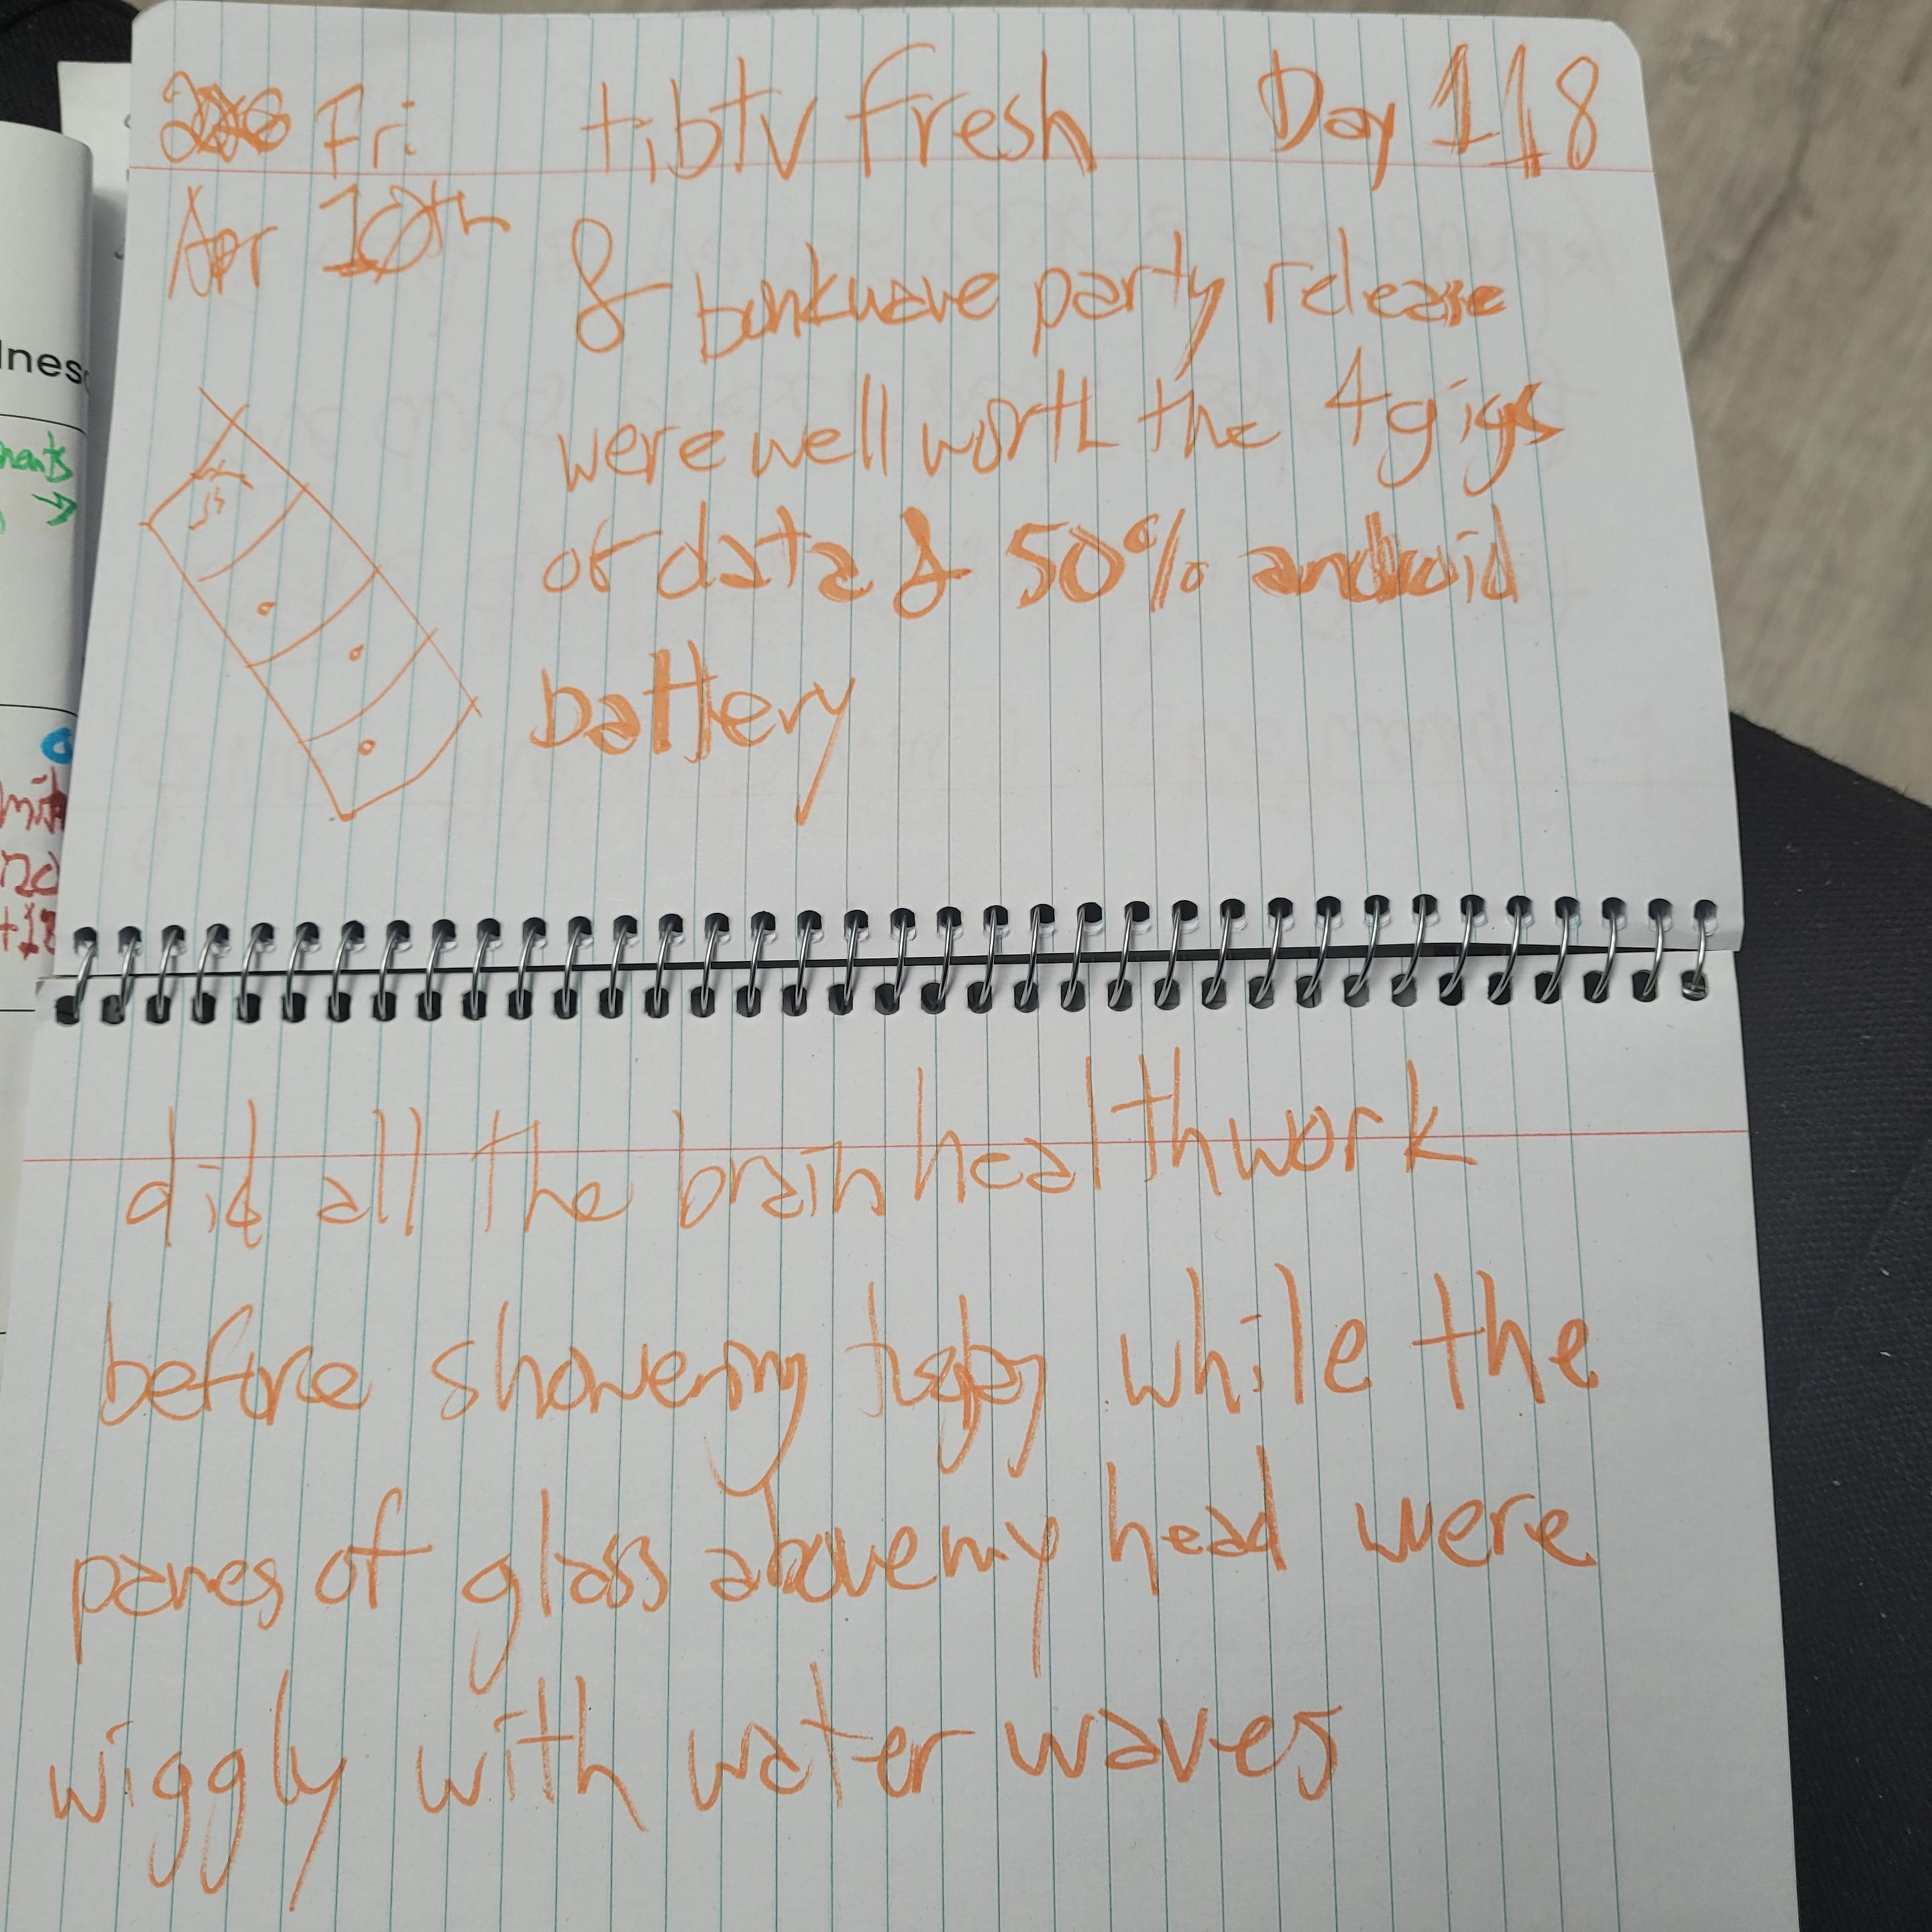 Fri tibtv fresh Day 118
Apr 10th
& bunkwave party release
were well worth the 4 gigs
of data & 50% android
battery
did all the brain health work
before showering while the
panes of glass above my head were
wiggly with water waves